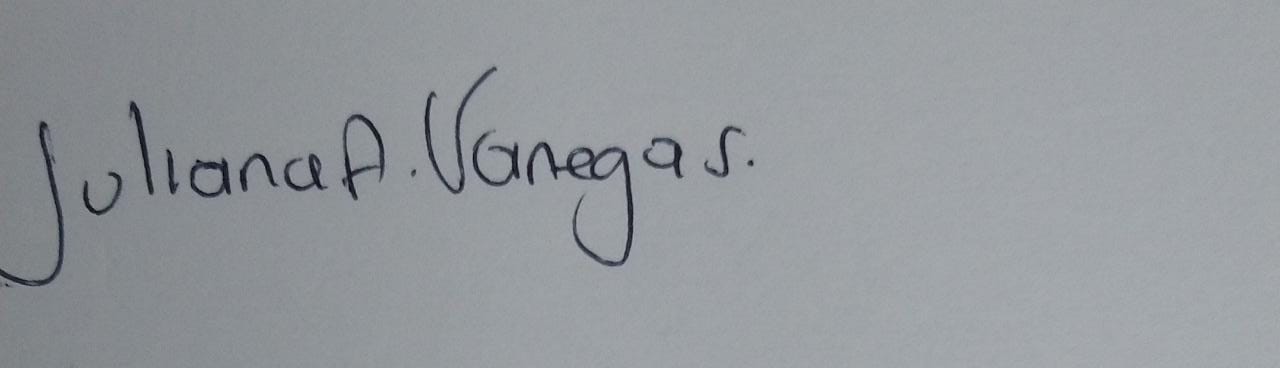 Juliana A. Vanegas.